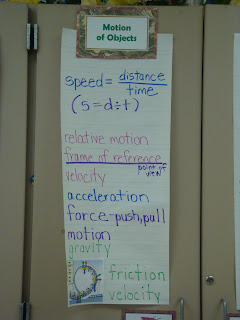 Motion
of Objects
speed = distance
time
(s = d ÷ t)
relative motion
frame of reference
point of
view
velocity
acceleration
force - push, pull
motion
gravity
friction
velocity